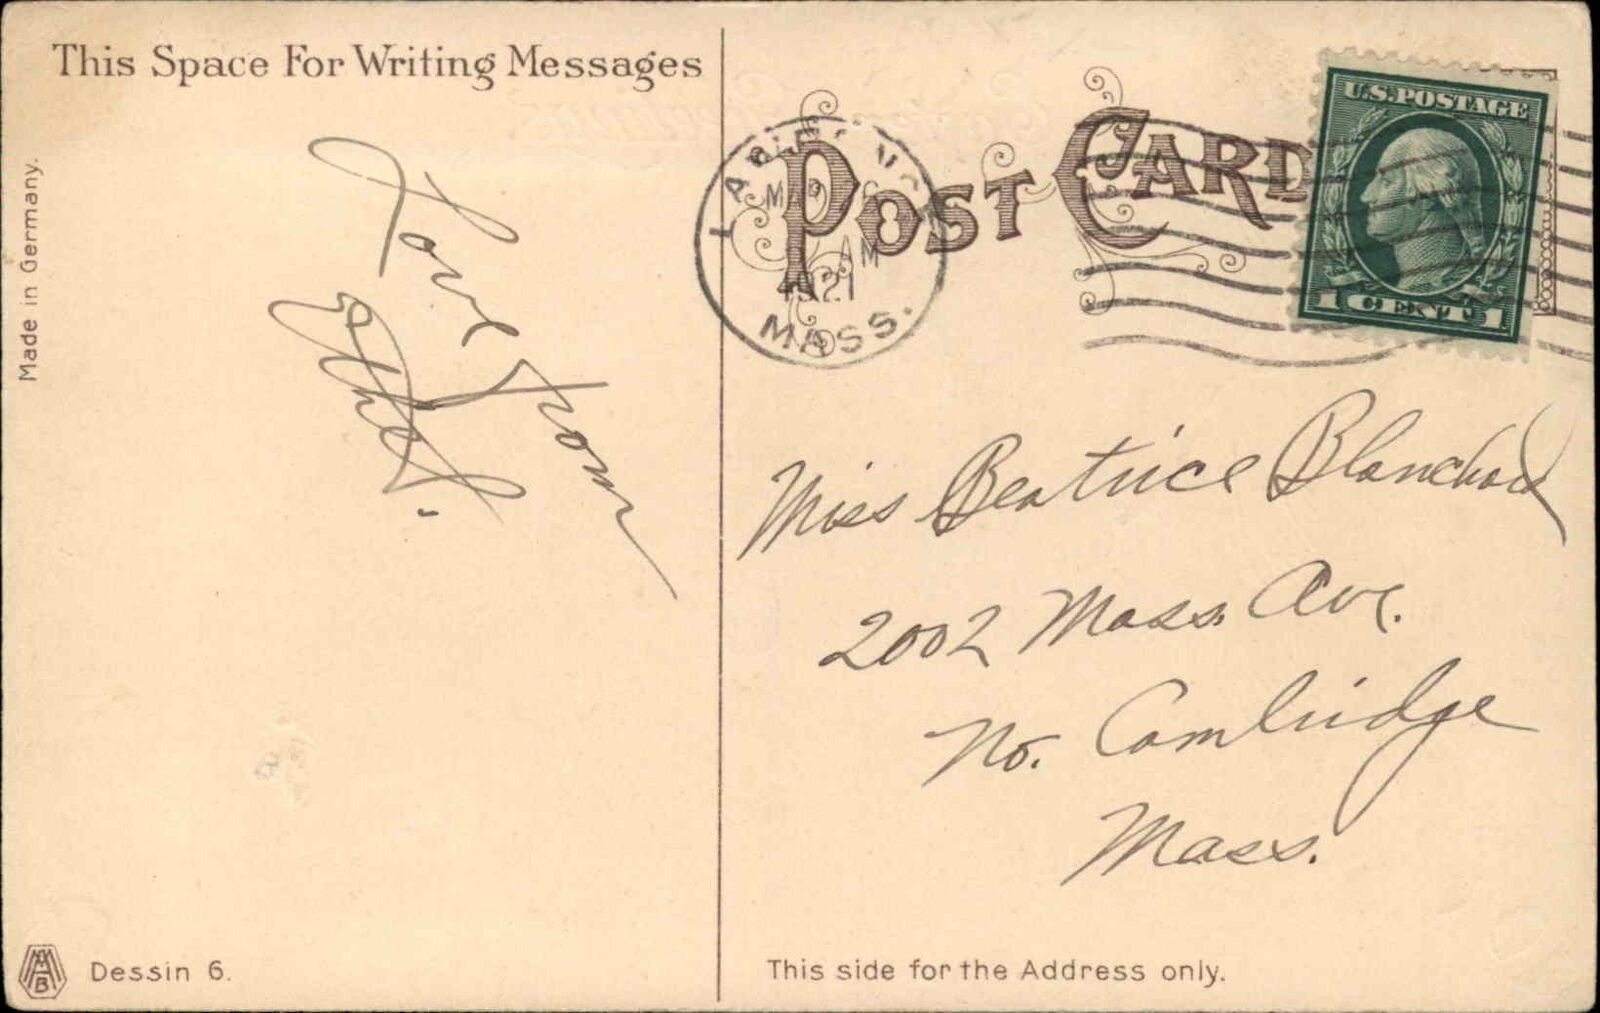 This Space For Writing Messages
Made in Germany.
Love from
Ethel.
MAB
Dessin 6.
POST CARD
MAR
8
AM
1921
MASS.
U.S. POSTAGE
1 CENT 1
Miss Beatrice Blanchard
2002 Mass. Ave.
No. Cambridge
Mass.
This side for the Address only.